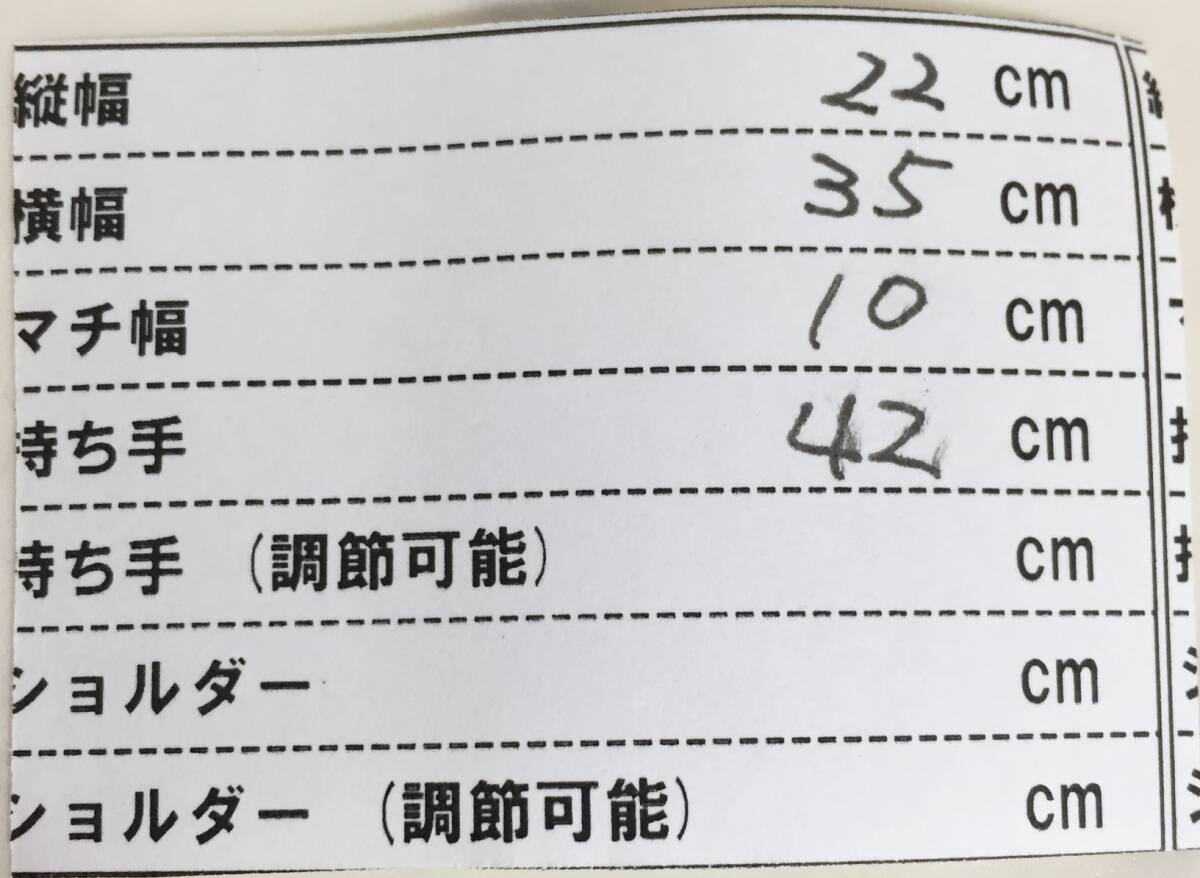 縦幅 22 cm
横幅 35 cm
マチ幅 10 cm
持ち手 42 cm
持ち手 (調節可能) cm
ショルダー cm
ショルダー (調節可能) cm